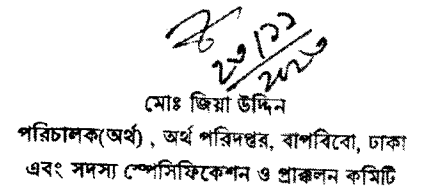 ২৩/১১
২০২৩
মোঃ জিয়া উদ্দিন
পরিচালক(অর্থ) , অর্থ পরিদপ্তর, বাপবিবো, ঢাকা
এবং সদস্য স্পেসিফিকেশন ও প্রাক্কলন কমিটি